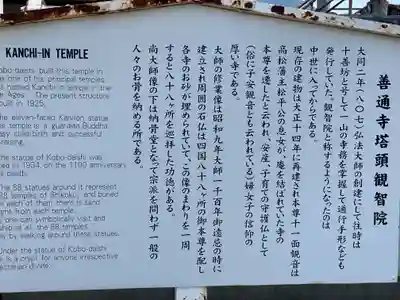 KANCHI-IN TEMPLE
Kobo-daishi built this temple in
named Kanchi-in Temple in the
Ages. The present structure
built in 1925.
eleven-faced Kannon statue
temple is a guardian Buddha
easy childbirth and successful
raising.
statue of Kobo-daishi was
in 1934 on the 1100th anniversary
death.
88 statues around it represent
temples of Shikoku, and buried
each of them, there is sand
from each temple.
one can symbolically visit and
worship at all the 88 temples
by walking around these statues.
Under the statue of Kobo-daishi
is a crypt for anyone irrespective
sectarian
善通寺塔頭観智院
大同二年(八〇七)弘法大師の創建にして往時は
十善坊と号して一山の寺務を掌握して通行手形なども
発行していた。観智院と称するようになったのは
中世に入ってからである。
現存の建物は大正十四年に再建され本尊十一面観音は
高松藩主松平公の息女が小庵を結ばれていた寺の
本尊を遷したといわれ、安産、子育ての守護仏として
(俗に子安観音とも云われている)婦女子の信仰の
厚い寺である。
大師の修業像は昭和九年大師一千百年御遠忌の時に
建立され周囲の石仏は四国八十八ヶ所の御本尊を配し
各寺のお砂が埋められていて、この像のまわりを一周
すると八十八ヶ所を巡拝した功徳がある。
尚大師像の下は納骨堂となって宗派を問わず一般の
人々のお骨を納める所である。